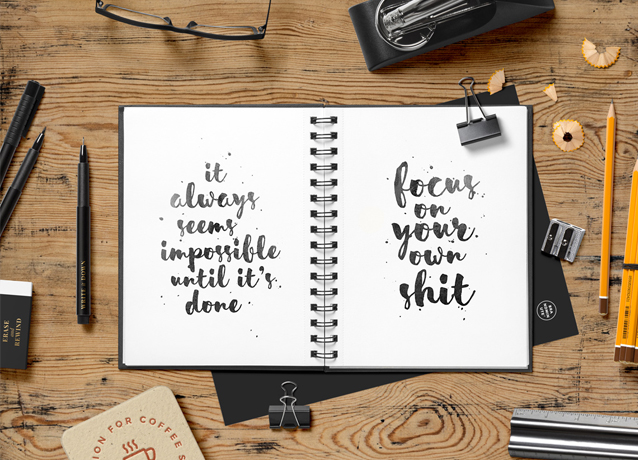 it
always
seems
impossible
until it's
done
focus
on
your
own
shit
WRITE + DOWN
ERASE
AND
REWIND
ION FOR COFFEE S